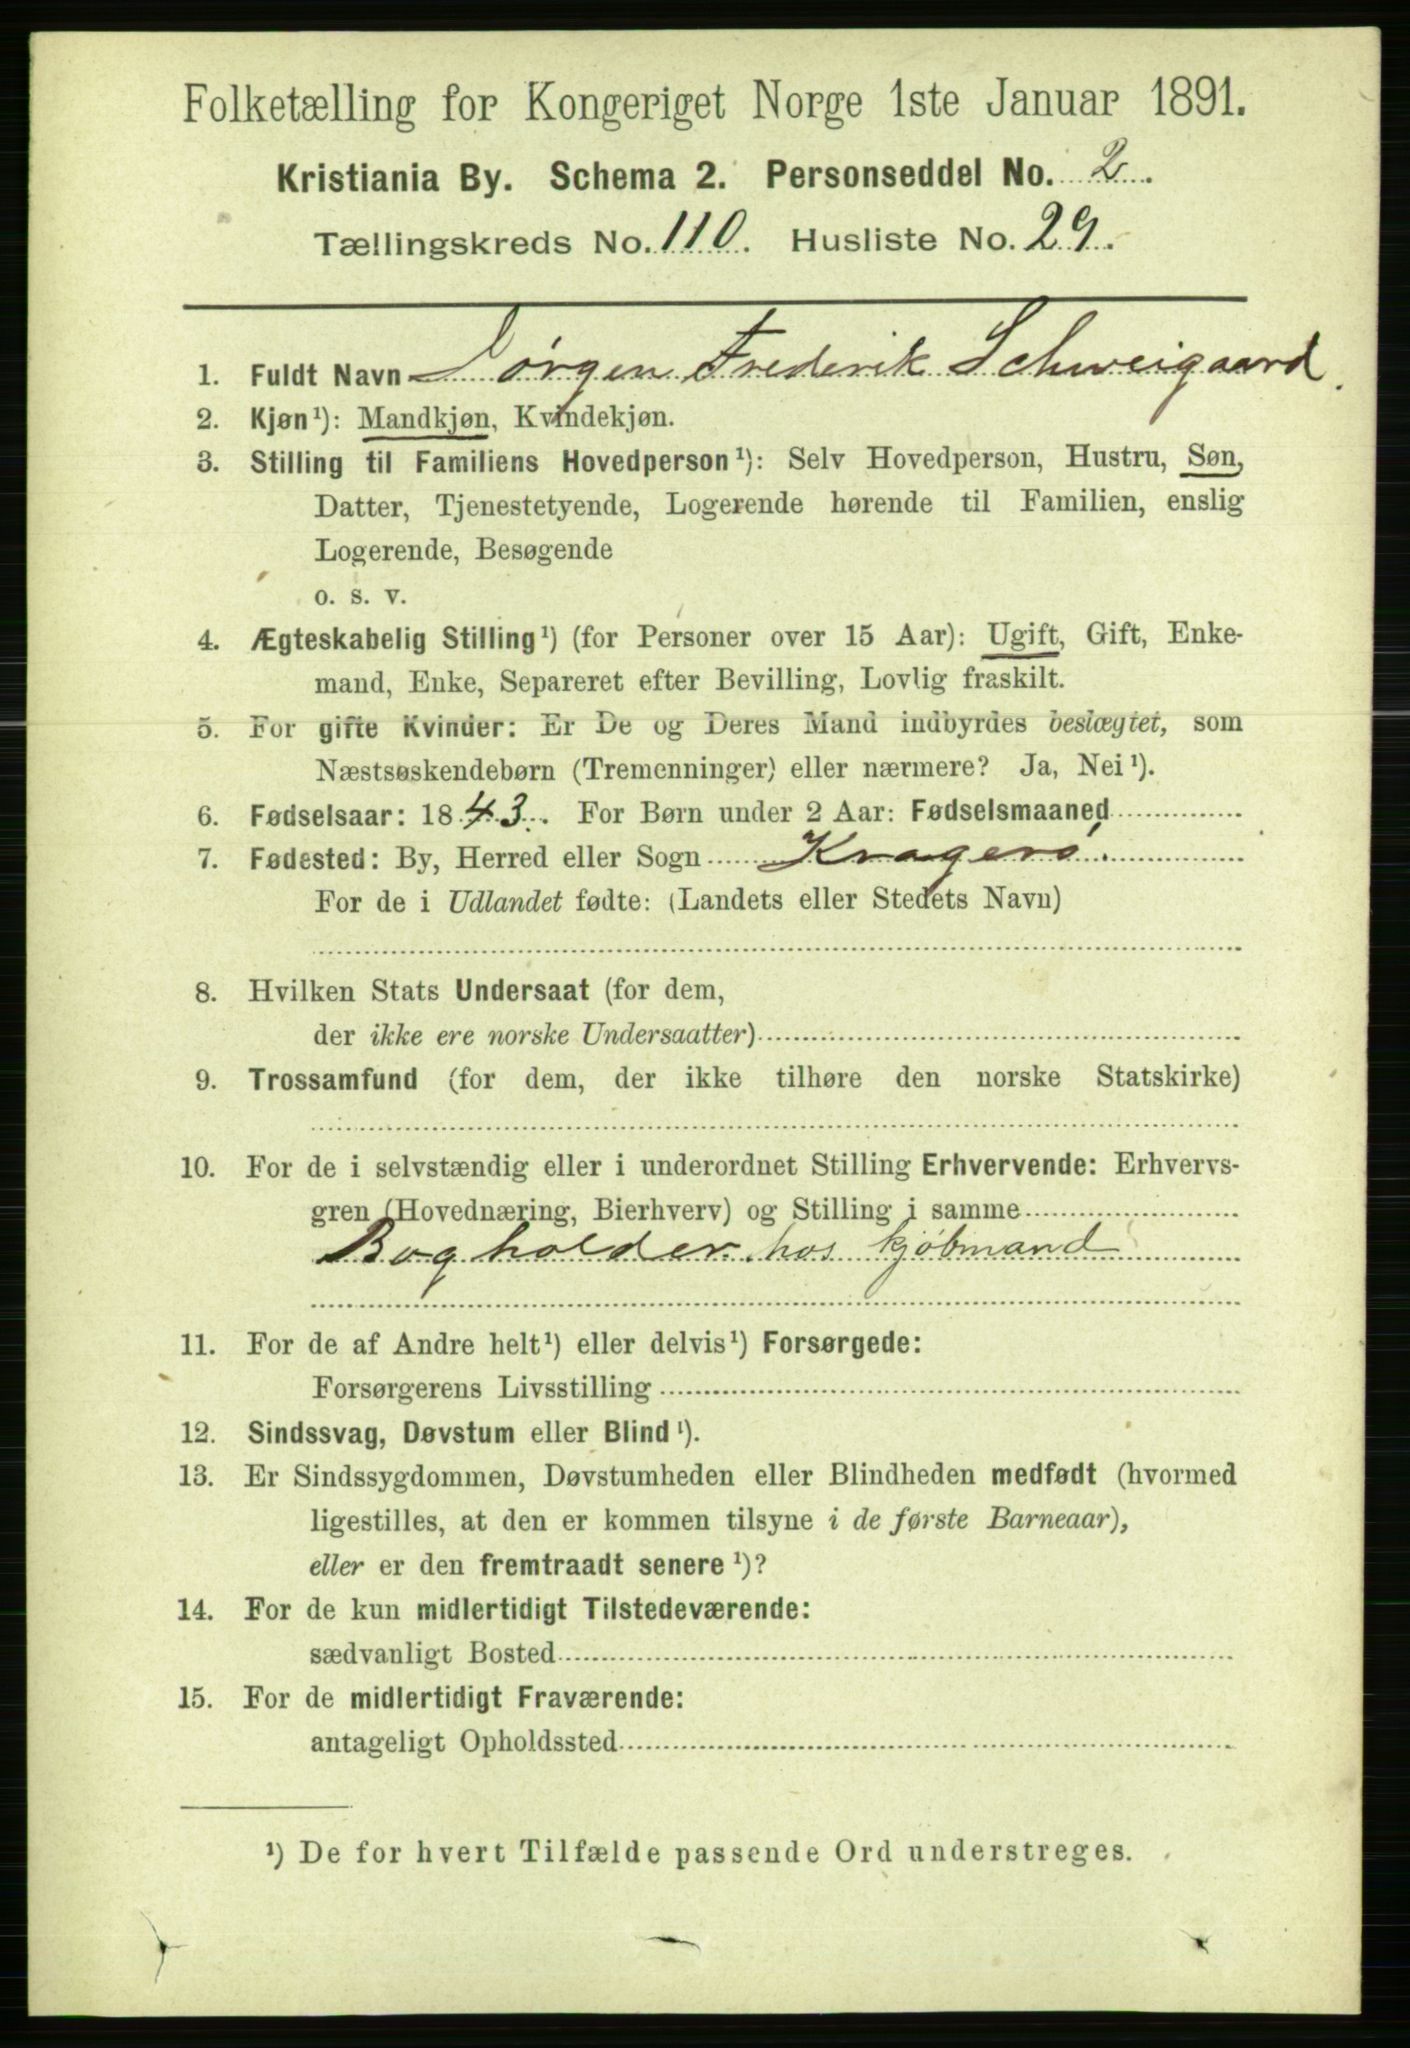 Folketælling for Kongeriget Norge 1ste Januar 1891.
Kristiania By. Schema 2. Personseddel No. 2.
Tællingskreds No. 110. Husliste No. 29.
1. Fuldt Navn Jørgen Frederik Schweigaard.
2. Kjøn¹): Mandkjøn, Kvindekjøn.
3. Stilling til Familiens Hovedperson¹): Selv Hovedperson, Hustru, Søn,
Datter, Tjenestetyende, Logerende hørende til Familien, enslig
Logerende, Besøgende
o. s. v.
4. Ægteskabelig Stilling¹) (for Personer over 15 Aar): Ugift, Gift, Enke-
mand, Enke, Separeret efter Bevilling, Lovlig fraskilt.
5. For gifte Kvinder: Er De og Deres Mand indbyrdes beslægtet, som
Næstsøskendebørn (Tremenninger) eller nærmere? Ja, Nei¹).
6. Fødselsaar: 1843. For Børn under 2 Aar: Fødselsmaaned
7. Fødested: By, Herred eller Sogn Kragerö.
For de i Udlandet fødte: (Landets eller Stedets Navn)
8. Hvilken Stats Undersaat (for dem,
der ikke ere norske Undersaatter)
9. Trossamfund (for dem, der ikke tilhøre den norske Statskirke)
10. For de i selvstændig eller i underordnet Stilling Erhvervende: Erhvervs-
gren (Hovednæring, Bierhverv) og Stilling i samme
Bogholder hos kjöbmand
11. For de af Andre helt¹) eller delvis¹) Forsørgede:
Forsørgerens Livsstilling
12. Sindssvag, Døvstum eller Blind¹).
13. Er Sindssygdommen, Døvstumheden eller Blindheden medfødt (hvormed
ligestilles, at den er kommen tilsyne i de første Barneaar),
eller er den fremtraadt senere¹)?
14. For de kun midlertidigt Tilstedeværende:
sædvanligt Bosted
15. For de midlertidigt Fraværende:
antageligt Opholdssted
¹) De for hvert Tilfælde passende Ord understreges.